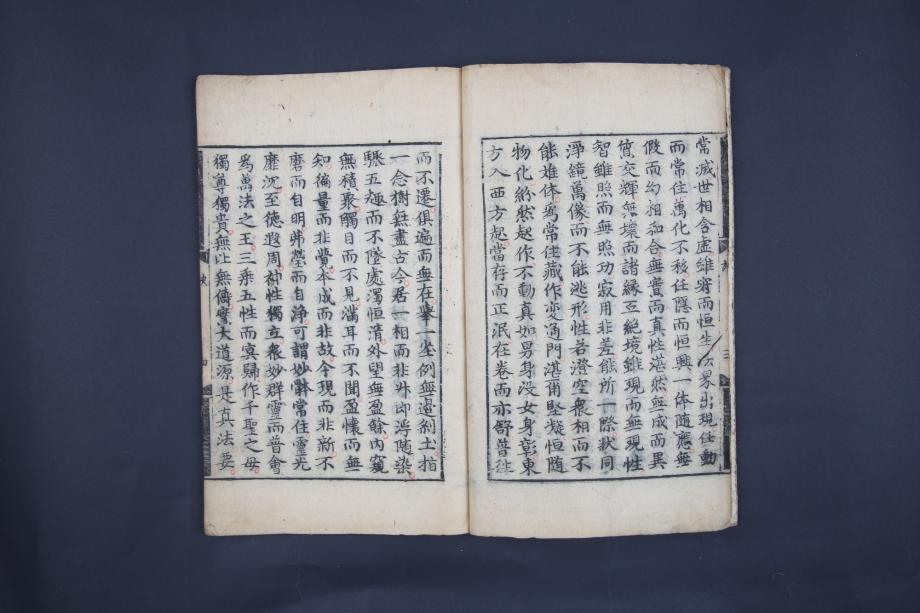 常滅世相含虛雖寂而恒生法界出現任動
而常住萬化不移任隱而恒興一体隨應無
假而幻相和合無實而真性湛然無成而異
質交輝無壞而諸緣互絕境雖現而無現性
智雖照而無照功寂用非差能所一際狀同
淨鏡萬像而不能逃形性若澄空衆相而不
能 体爲常住藏作变通門湛爾堅凝恒隨
物化紛然起作不動真如男身没女身彰東
方入西方起當存而正泯在卷而亦舒普徃
而不遷俱遍而無在舉一尘例無邊刹土指
一念樹無盡古今居一相而非 即淨隨染
驟五趣而不墜處濁恒清外望無盈餘內窺
無積聚觸目而不見滿耳而不聞盈懷而無
知徧量而非費本成而非故今現而非新不
磨而自明弗瑩而自淨可謂妙躰常住靈光
靡沉至德遐周神性獨立衆妙群靈而普會
爲萬法之王三乘五性而冥歸作千聖之母
獨尊獨貴無比無儔實大道源是真法要